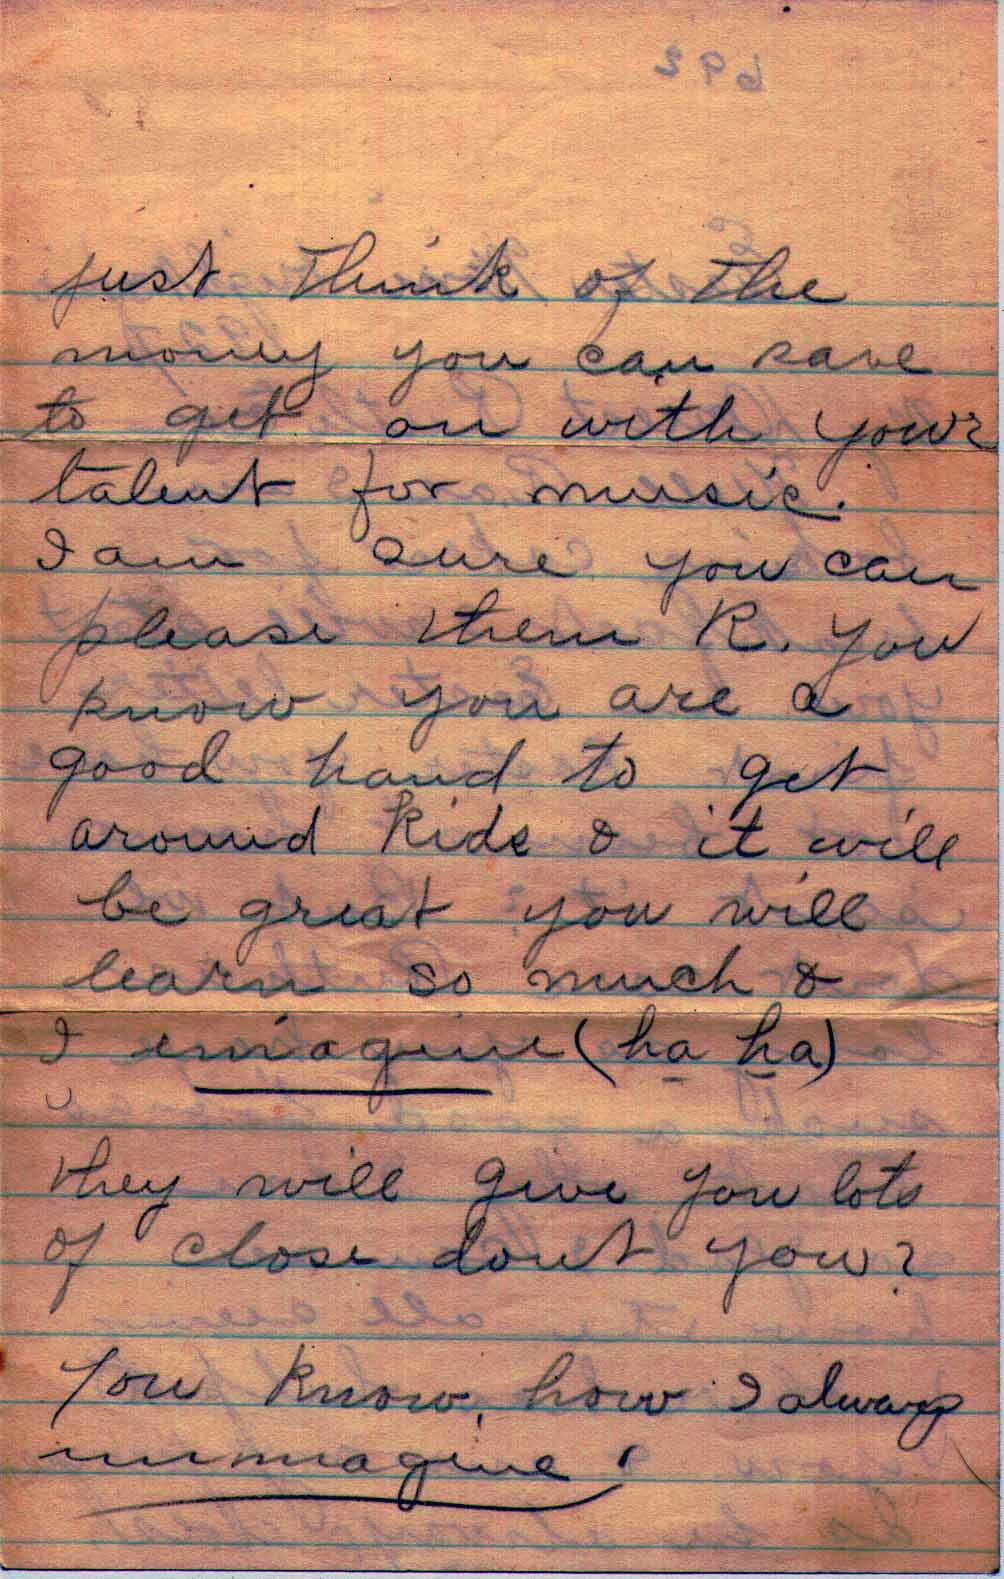 just think of the
money you can save
to get on with your
talent for music.
I am sure you can
please them R. You
know you are a
good hand to get
around kids & it will
be great you will
learn so much &
I imagine (ha ha)
they will give you lots
of close dont you?
You know, how I always
immagine!